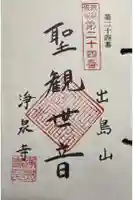 第二十四番
第二十四番
出島山
聖観世音
浄泉寺